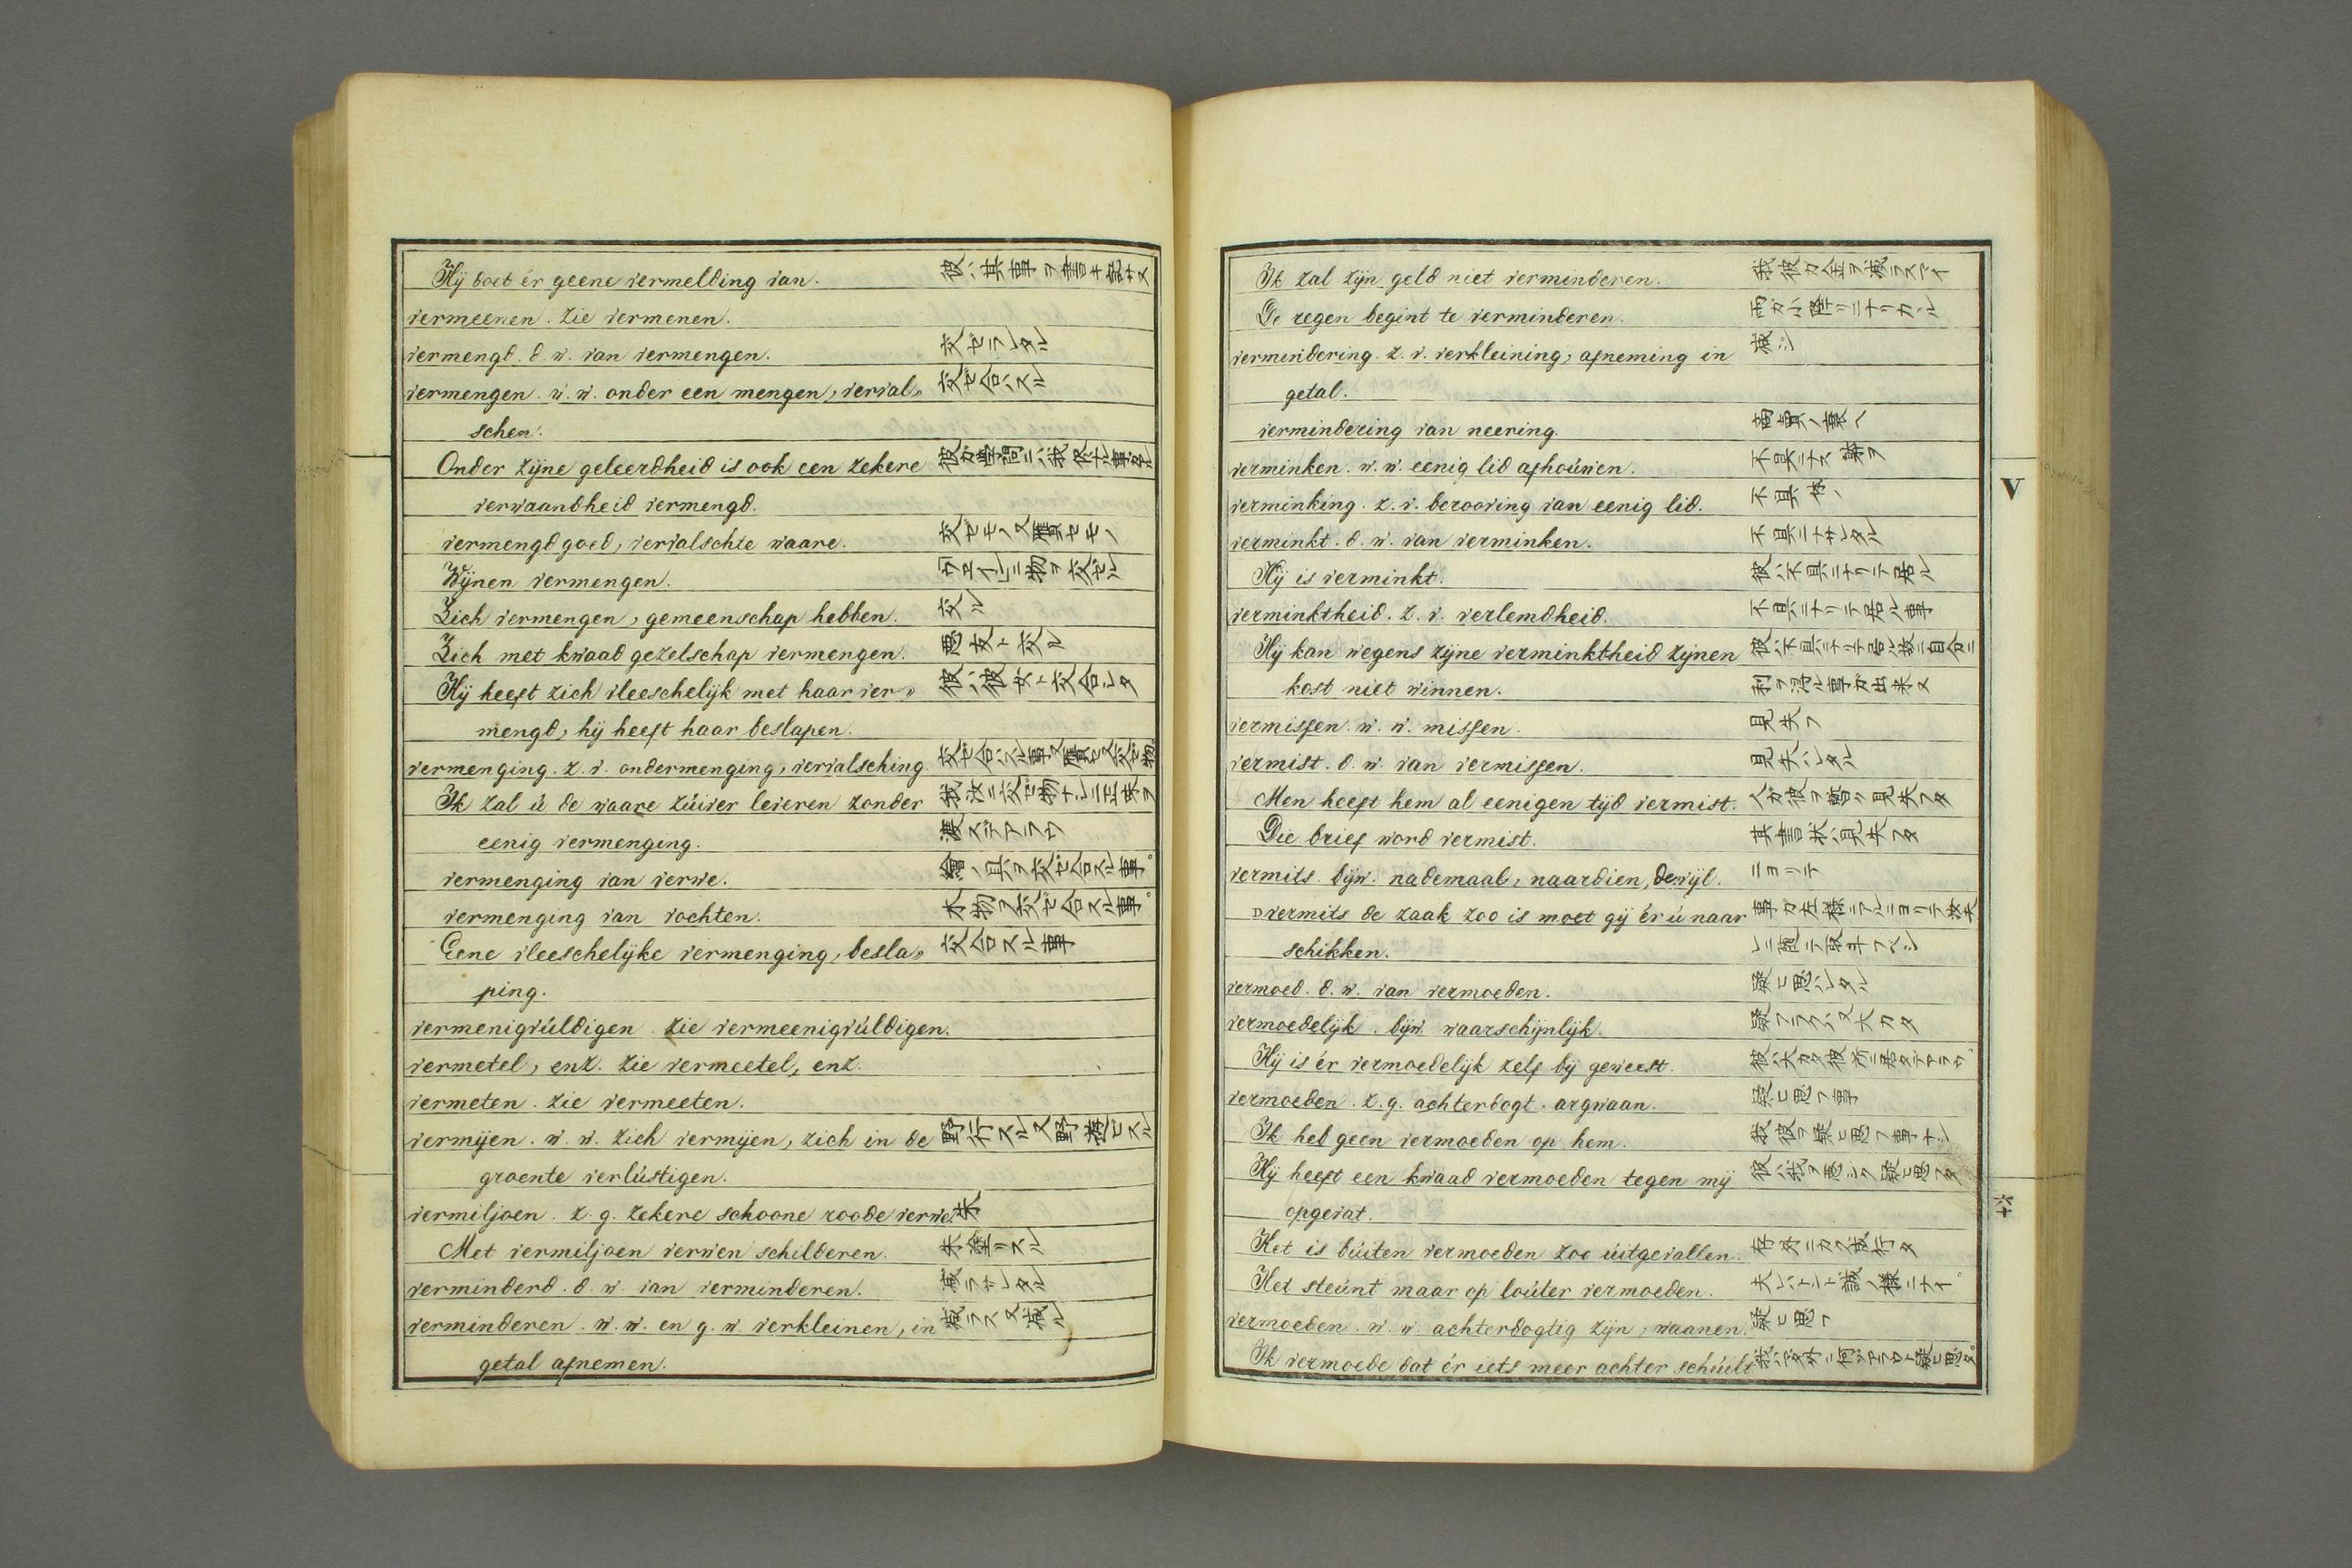 Hij doet ér geene vermelding van. 彼ハ其事ヲ書キ記サヌ
vermeenen. zie vermenen.
vermengd. d. w. van vermengen. 交ゼラレタル
vermengen. w. w. onder een mengen, verval» 交ゼ合ハスル
schen.
Onder zijne geleerdheid is ook een zekere
verwaandheid vermengd.
vermengd goed, vervalschte waare. 交ゼモノ又贋セモノ
Wijnen vermengen. 物ヲ交ゼル
Zich vermengen, gemeenschap hebben. 交ル
Zich met kwaad gezelschap vermengen. 悪友ト交ル
Hij heeft zich vleeschelijk met haar ver» 彼ハ彼女ト交合シタ
mengd, hij heeft haar beslapen.
vermenging. z. v. ondermenging, vervalsching. 交ゼ合ハスル事又贋セ又交ゼ物
Ik zal ú de waare zúiver leveren zonder 我汝ニ交ゼ物ナシニ正味ヲ
eenig vermenging. 渡スデアラウ
vermenging van verwe. 繪ノ具ヲ交ゼ合スル事。
vermenging van vochten. 水物ヲ交ゼ合スル事。
Eene vleeschelijke vermenging, besla» 交合スル事
ping.
vermenigvúldigen zie vermeenigvúldigen.
vermetel, enz. zie vermeetel, enz.
vermeten. zie vermeeten.
vermijen. w. w. zich vermijen, zich in de 野行スル又野遊ビスル
groente verlústigen.
vermiljoen. z. g. zekere schoone roode verwe. 朱
Met vermiljoen verwen schilderen. 朱塗リスル
verminderd. d. w. van verminderen. 減ラサレタル
verminderen. w. w. en g. w. verkleinen, in 減ラス又減ル
getal afnemen.
Ik zal zijn geld niet verminderen. 我彼ガ金ヲ減ラスマイ
De regen begint te verminderen. 雨ガ小降リニナリカヽル
vermindering. z. v. verkleining, afneming in 減シ
getal.
vermindering van neering. 商賣ノ衰ヘ
verminken. w. w. eenig lid afhoúwen. 不具ニナス
verminking. z. v. berooving van eenig lid. 不具
verminkt. d. w. van verminken. 不具ニナサレタル
Hij is verminkt. 彼ハ不具ニナリテ居ル
verminktheid. z. v. verlemdheid. 不具ニナリテ居ル事
Hij kan wegens zijne verminktheid zijnen 彼ハ不具ニナリテ居ル故ニ自分ニ
kost niet winnen. 利ヲ得ル事ガ出来ヌ
vermissen. w. w. missen. 見失フ
vermist. d. w. van vermissen. 見失ハレタル
Men heeft hem al eenigen tijd vermist. 人ガ彼ヲ暫ク見失フタ
Die brief word vermist. 其書状ハ見失フタ
vermits. bijw. nademaal, naardien, dewijl. ニヨリテ
vermits de zaak zoo is moet gij ér ú naar 事ガ左様デアルニヨリテ故夫
schikken. レニ随テ取
vermoed. d. w. van vermoeden. 疑ヒ思ハレタル
vermoedelijk. bijw. waarschijnlijk. 疑フラクハ又大カタ
Hij is ér vermoedelijk zelf bij geweest. 彼ハ大カタ彼所ニ居タデアラウ
vermoeden. z. g. achterdogt, argwaan. 疑ヒ思フ事
Ik heb geen vermoeden op hem. 我彼ヲ疑ヒ思フ事ナシ
Hij heeft een kwaad vermoeden tegen mij 彼ハ我ヲ悪シク疑ヒ思フタ
opgevat.
Het is búiten vermoeden zoo úitgevallen. 存外ニカク成行タ
Het steúnt maar op loúter vermoeden.
vermoeden. w. w. achterdogtig zijn, waanen. 疑ヒ思フ
Ik vermoede dat ér iets meer achter schúilt.
V